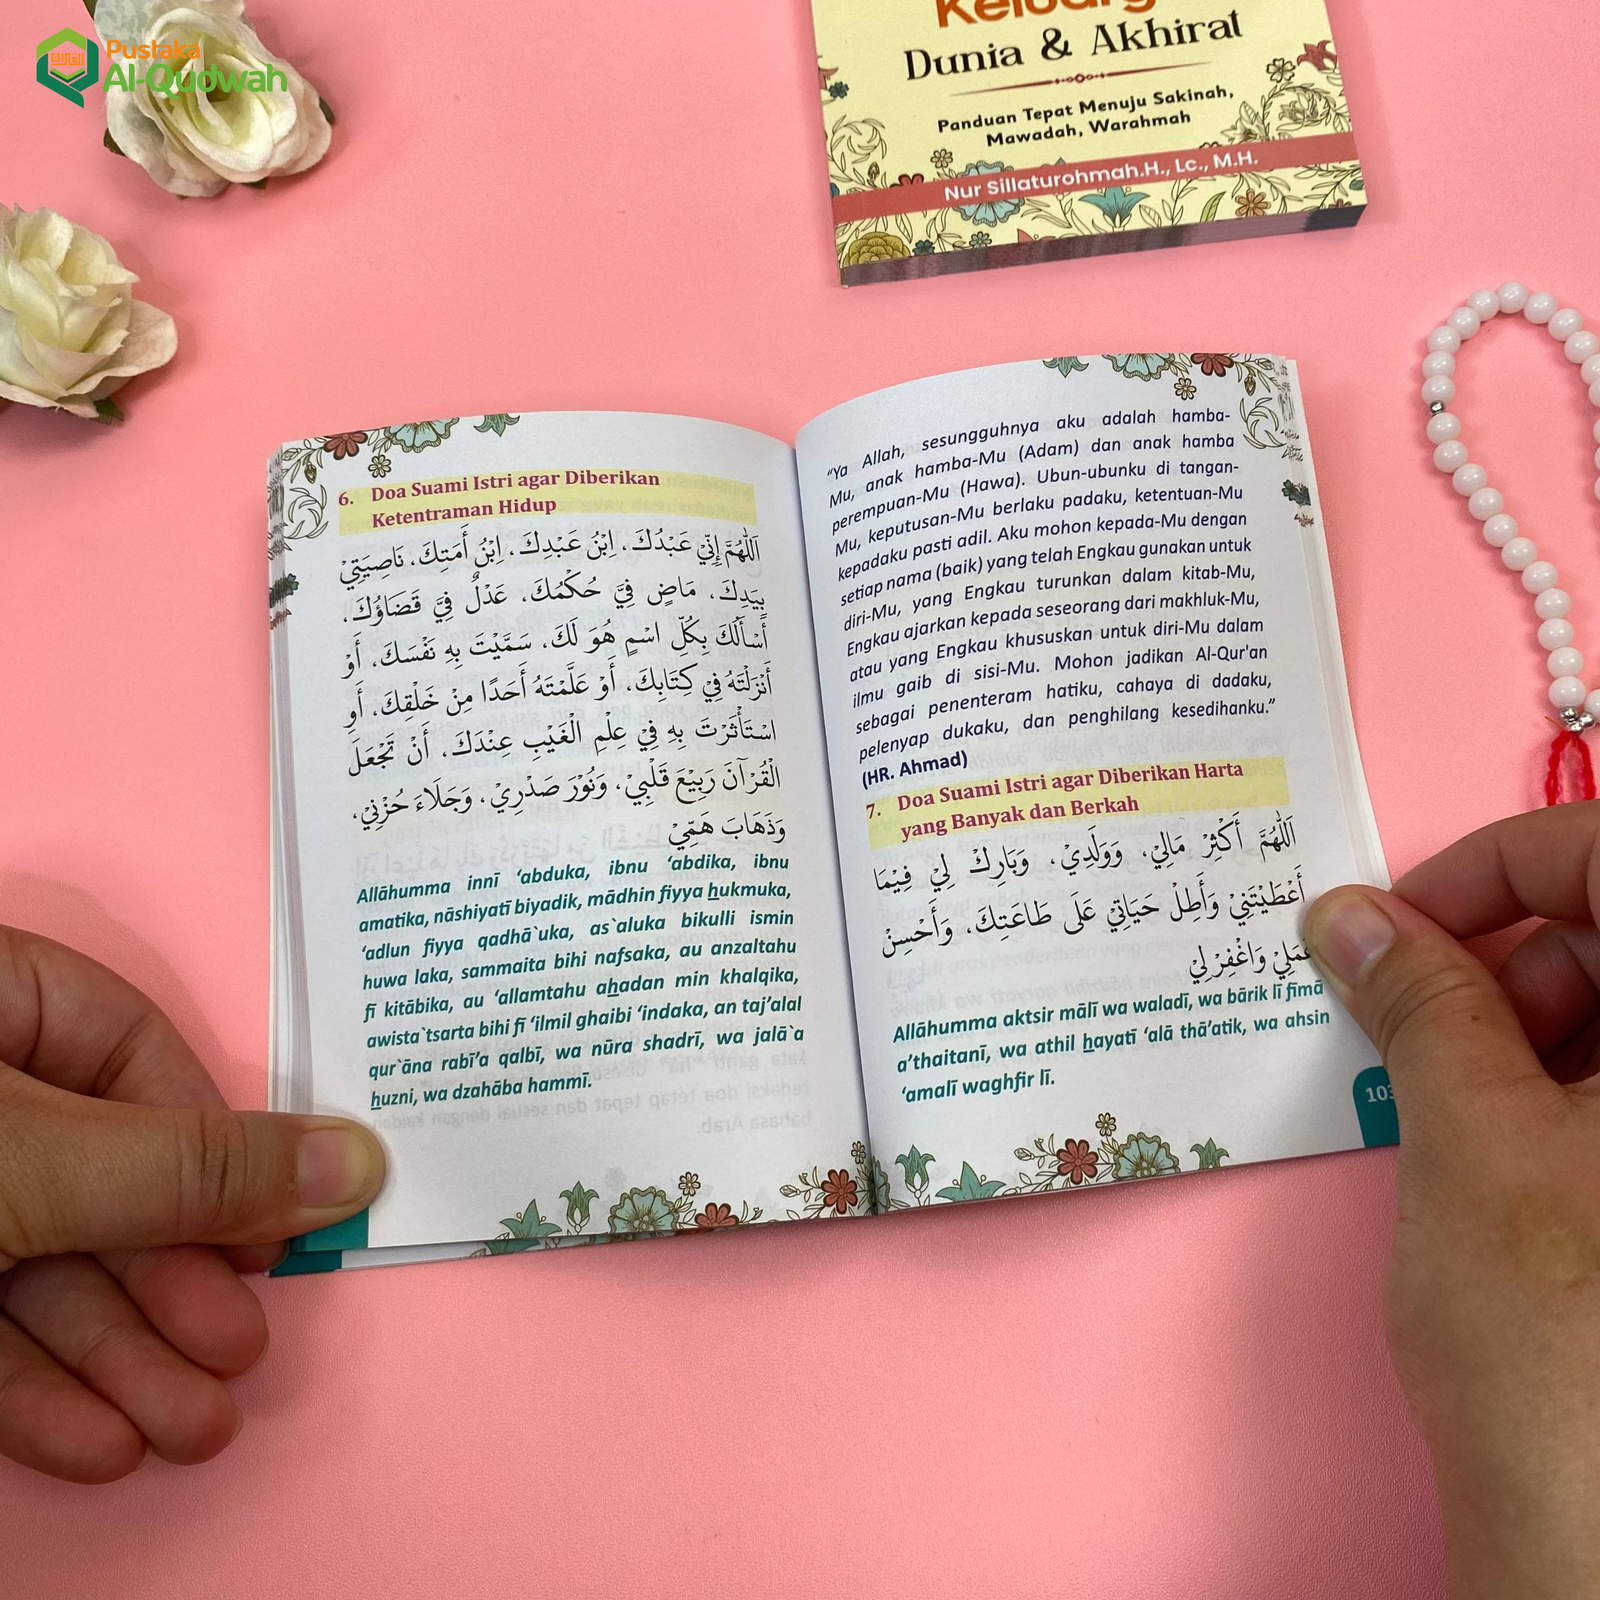 Pustaka
Al-Qudwah
Dunia & Akhirat
Panduan Tepat Menuju Sakinah,
Mawadah, Warahmah
Nur Sillaturohmah.H., Lc., M.H.
6. Doa Suami Istri agar Diberikan
Ketentraman Hidup
اَللّٰهُمَّ إِنِّيْ عَبْدُكَ، اِبْنُ عَبْدِكَ، اِبْنُ أَمَتِكَ، نَاصِيَتِيْ
بِيَدِكَ، مَاضٍ فِيَّ حُكْمُكَ، عَدْلٌ فِيَّ قَضَاؤُكَ،
أَسْأَلُكَ بِكُلِّ اسْمٍ هُوَ لَكَ، سَمَّيْتَ بِهِ نَفْسَكَ، أَوْ
أَنْزَلْتَهُ فِيْ كِتَابِكَ، أَوْ عَلَّمْتَهُ أَحَدًا مِنْ خَلْقِكَ، أَوِ
اسْتَأْثَرْتَ بِهِ فِيْ عِلْمِ الْغَيْبِ عِنْدَكَ، أَنْ تَجْعَلَ
الْقُرْآنَ رَبِيْعَ قَلْبِيْ، وَنُوْرَ صَدْرِيْ، وَجَلَاءَ حُزْنِيْ،
وَذَهَابَ هَمِّيْ
Allāhumma innī ‘abduka, ibnu ‘abdika, ibnu
amatika, nāshiyatī biyadik, mādhin fiyya hukmuka,
‘adlun fiyya qadhā`uka, as`aluka bikulli ismin
huwa laka, sammaita bihi nafsaka, au anzaltahu
fī kitābika, au ‘allamtahu ahadan min khalqika,
awista`tsarta bihi fī ‘ilmil ghaibi ‘indaka, an taj’alal
qur`āna rabī’a qalbī, wa nūra shadrī, wa jalā`a
huzni, wa dzahāba hammī.
“Ya Allah, sesungguhnya aku adalah hamba-
Mu, anak hamba-Mu (Adam) dan anak hamba
perempuan-Mu (Hawa). Ubun-ubunku di tangan-
Mu, keputusan-Mu berlaku padaku, ketentuan-Mu
kepadaku pasti adil. Aku mohon kepada-Mu dengan
setiap nama (baik) yang telah Engkau gunakan untuk
diri-Mu, yang Engkau turunkan dalam kitab-Mu,
Engkau ajarkan kepada seseorang dari makhluk-Mu,
atau yang Engkau khususkan untuk diri-Mu dalam
ilmu gaib di sisi-Mu. Mohon jadikan Al-Qur'an
sebagai penenteram hatiku, cahaya di dadaku,
pelenyap dukaku, dan penghilang kesedihanku.”
(HR. Ahmad)
7. Doa Suami Istri agar Diberikan Harta
yang Banyak dan Berkah
اَللّٰهُمَّ أَكْثِرْ مَالِيْ، وَوَلَدِيْ، وَبَارِكْ لِيْ فِيْمَا
أَعْطَيْتَنِيْ وَأَطِلْ حَيَاتِيْ عَلَى طَاعَتِكَ، وَأَحْسِنْ
عَمَلِيْ وَاغْفِرْ لِيْ
Allāhumma aktsir mālī wa waladī, wa bārik lī fīmā
a’thaitanī, wa athil hayatī ‘alā thā’atik, wa ahsin
‘amalī waghfir lī.
103